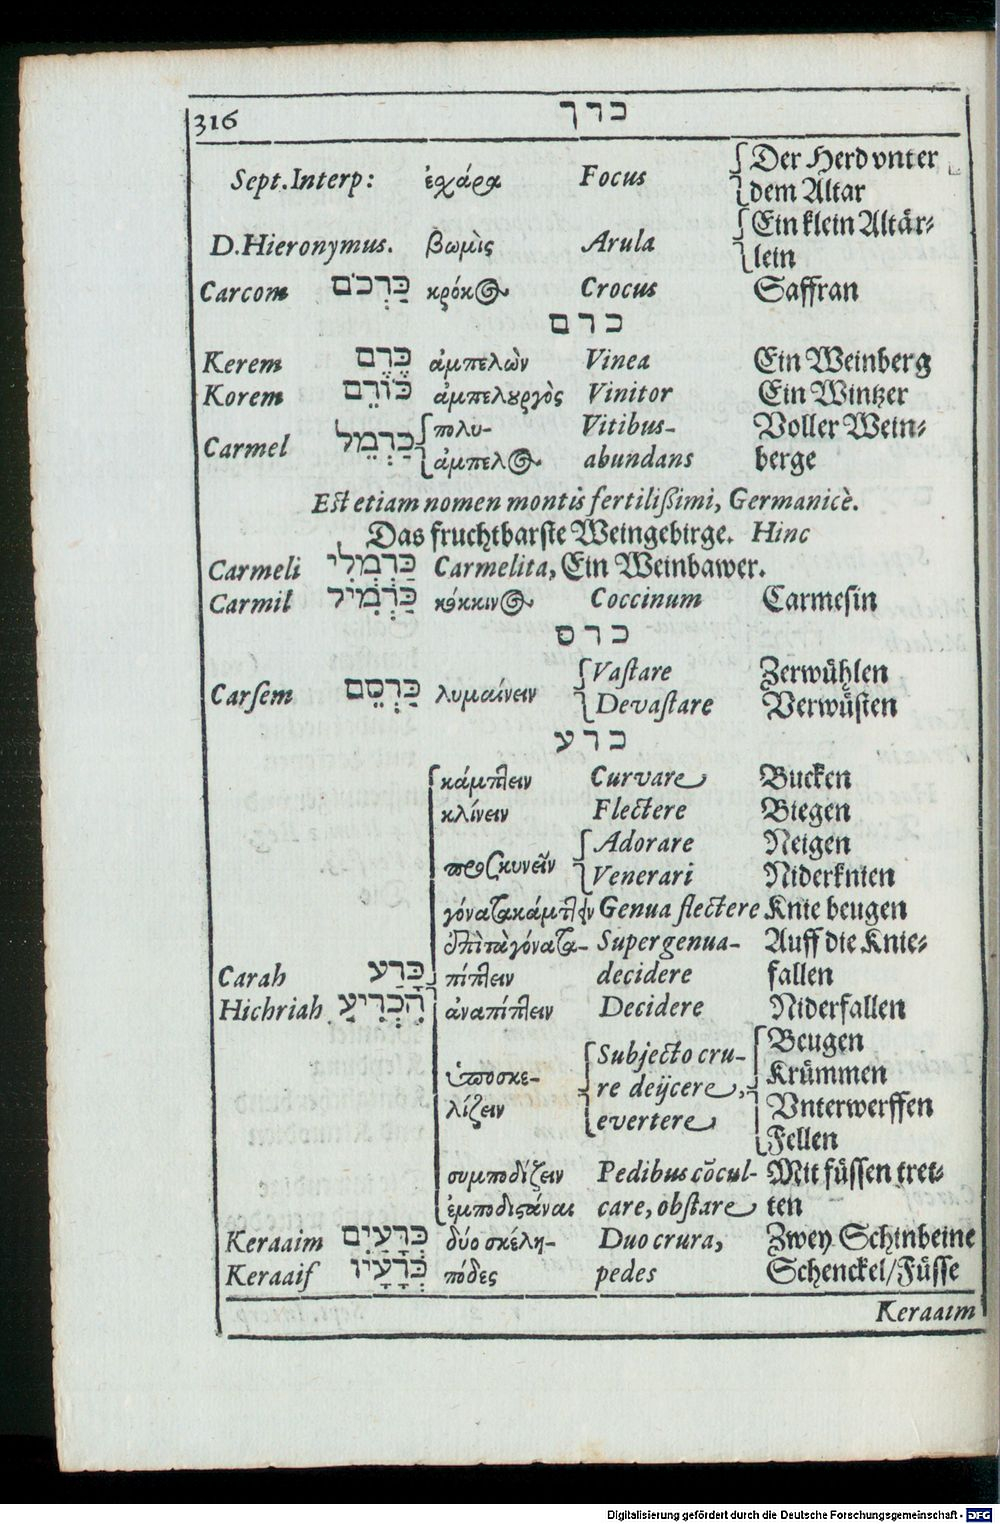 316 כרך
Sept. Interp: ἐχάρα Focus Der Herd vnter
dem Altar
D. Hieronymus. βωμὶς Arula Ein klein Altär-
lein
Carcom כַּרְכֹּם κρόκος Crocus Saffran
כרם
Kerem כֶּרֶם ἀμπελὼν Vinea Ein Weinberg
Korem כּוֹרֵם ἀμπελȣργὸς Vinitor Ein Wintzer
Carmel כַּרְמֵל πολυ- Vitibus- Voller Wein-
ἀμπελος abundans berge
Est etiam nomen montis fertilißimi, Germanicè.
Das fruchtbarste Weingebirge. Hinc
Carmeli כַּרְמְלִי Carmelita, Ein Weinbawer.
Carmil כַּרְמִיל κόκκινος Coccinum Carmesin
כרס
Carsem כַּרְסֵם λυμαίνειν Vastare Zerwühlen
Devastare Verwüsten
כרע
κάμπτειν Curvare Bucken
κλίνειν Flectere Biegen
προσκυνεῖν Adorare Neigen
Venerari Niderknien
γόνατα κάμπτειν Genua flectere Knie beugen
ἐπὶ τὰ γόνατα- Super genua- Auff die Knie-
Carah כָּרַע πίπτειν decidere fallen
Hichriah הִכְרִיעַ ἀναπίπτειν Decidere Niderfallen
Beugen
ὑποσκε- Subjecto cru- Krümmen
λίζειν re deijcere, Vnterwerffen
evertere Fellen
συμποδίζειν Pedibus cōcul- Mit füssen tret-
ἐμποδιςάναι care, obstare ten
Keraaim כְּרָעַיִם δύο σκέλη- Duo crura, Zwey Schinbeine
Keraaif כְּרָעָיו πόδες pedes Schenckel/Füsse
Keraaim
Digitalisierung gefördert durch die Deutsche Forschungsgemeinschaft - DFG